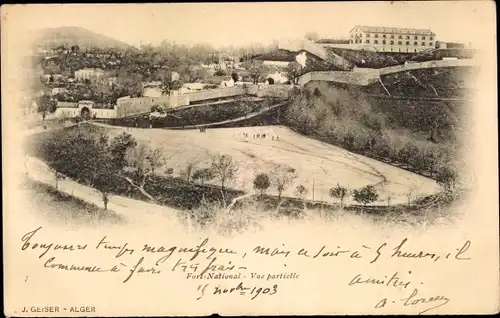 Toujours temps magnifique, mais ce soir à 5 heures, il
commence à faire très frais
Fort-National - Vue partielle
15 novbre 1903
amitiés
J. GEISER - ALGER